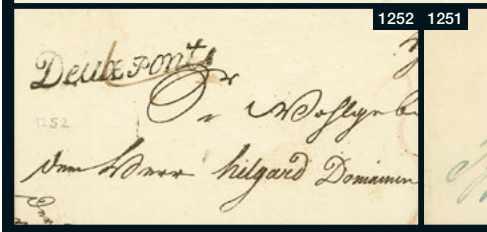 1252 1251
Deux Ponts
Sr Wohlgeb
1252
dem Herr hilgard Domainen